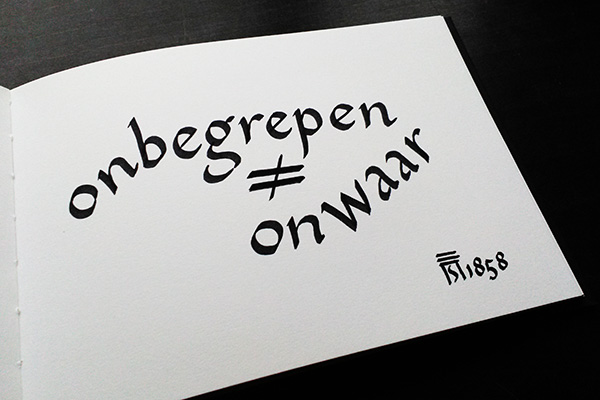 onbegrepen
≠
onwaar
1858